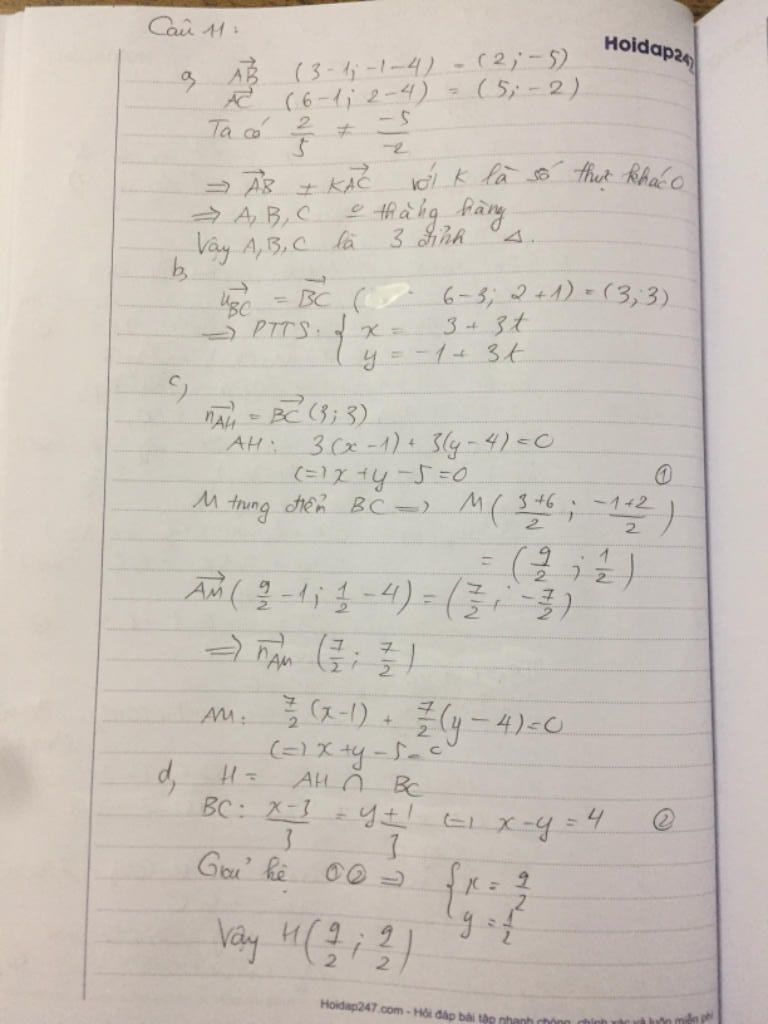 Câu 11:
Hoidap247
a, \overrightarrow{AB} (3-1; -1-4) = (2; -5)
\overrightarrow{AC} (6-1; 2-4) = (5; -2)
Ta có \frac{2}{5} ≠ \frac{-5}{-2}
⇒ \overrightarrow{AB} ≠ K\overrightarrow{AC} với K là số thực khác 0
⇒ A, B, C thẳng hàng
Vậy A, B, C là 3 đỉnh Δ.
b,
\overrightarrow{u_{BC}} = \overrightarrow{BC} ( 6-3; 2+1) = (3; 3)
⇒ PTTS: { x = 3 + 3t
y = -1 + 3t
c,
\overrightarrow{n_{AH}} = \overrightarrow{BC} (3; 3)
AH: 3(x-1) + 3(y-4) = 0
(=) x + y - 5 = 0 ①
M trung điểm BC ⇒ M ( \frac{3+6}{2} ; \frac{-1+2}{2} )
= ( \frac{9}{2} ; \frac{1}{2} )
\overrightarrow{AM} ( \frac{9}{2} - 1; \frac{1}{2} - 4) = ( \frac{7}{2} ; -\frac{7}{2} )
⇒ \overrightarrow{n_{AM}} ( \frac{7}{2} ; \frac{7}{2} )
AM: \frac{7}{2} (x-1) + \frac{7}{2} (y-4) = 0
(=) x + y - 5 = 0
d, H = AH ∩ BC
BC: \frac{x-3}{3} = \frac{y+1}{3} (=) x - y = 4 ②
hệ ①② ⇒ { x = \frac{9}{2}
y = \frac{1}{2}
Vậy H ( \frac{9}{2} ; \frac{9}{2} )
Hoidap247.com - Hỏi đáp bài tập nhanh chóng, chính xác và luôn miễn phí